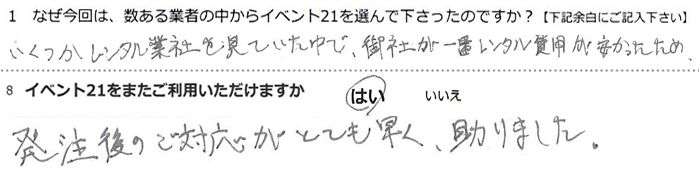 1 なぜ今回は、数ある業者の中からイベント21を選んで下さったのですか？【下記余白にご記入下さい】
いくつかレンタル業社を見ていた中で、御社が一番レンタル費用が安かったため、
8 イベント21をまたご利用いただけますか はい いいえ
発注後のご対応がとても早く、助りました。